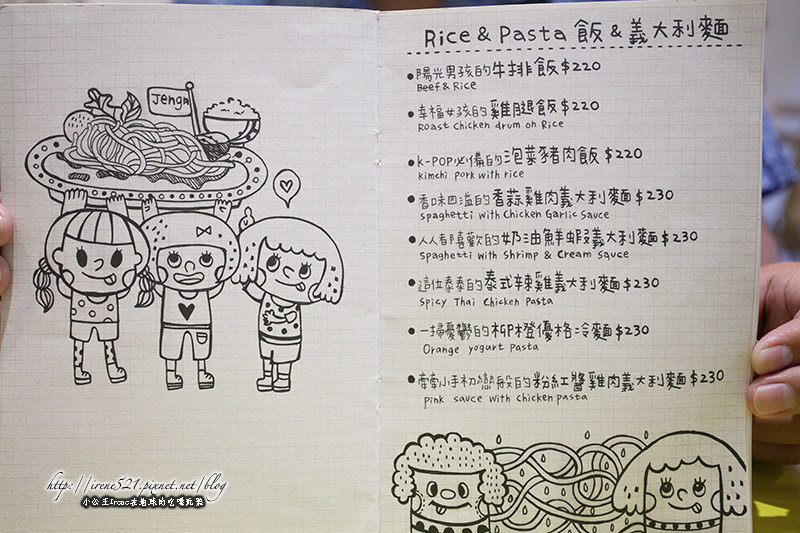 Jenga
Rice & Pasta 飯 & 義大利麵
•陽光男孩的牛排飯$220
Beef & Rice
•幸福女孩的雞腿飯$220
Roast chicken drum on Rice
•K-POP必備的泡菜豬肉飯 $220
Kimchi pork with rice
•香味四溢的香蒜雞肉義大利麵$230
Spaghetti with Chicken Garlic Sauce
•人人都喜歡的奶油鮮蝦義大利麵$230
Spaghetti with Shrimp & Cream Sauce
•這位泰泰的泰式辣雞義大利麵$230
Spicy Thai Chicken Pasta
•一掃憂鬱的柳橙優格冷麵$230
Orange yogurt Pasta
•牽牽小手初戀般的粉紅醬雞肉義大利麵$230
pink sauce with chicken pasta
http://irene521.pixnet.net/blog
小公主Irene在地球的吃喝玩樂